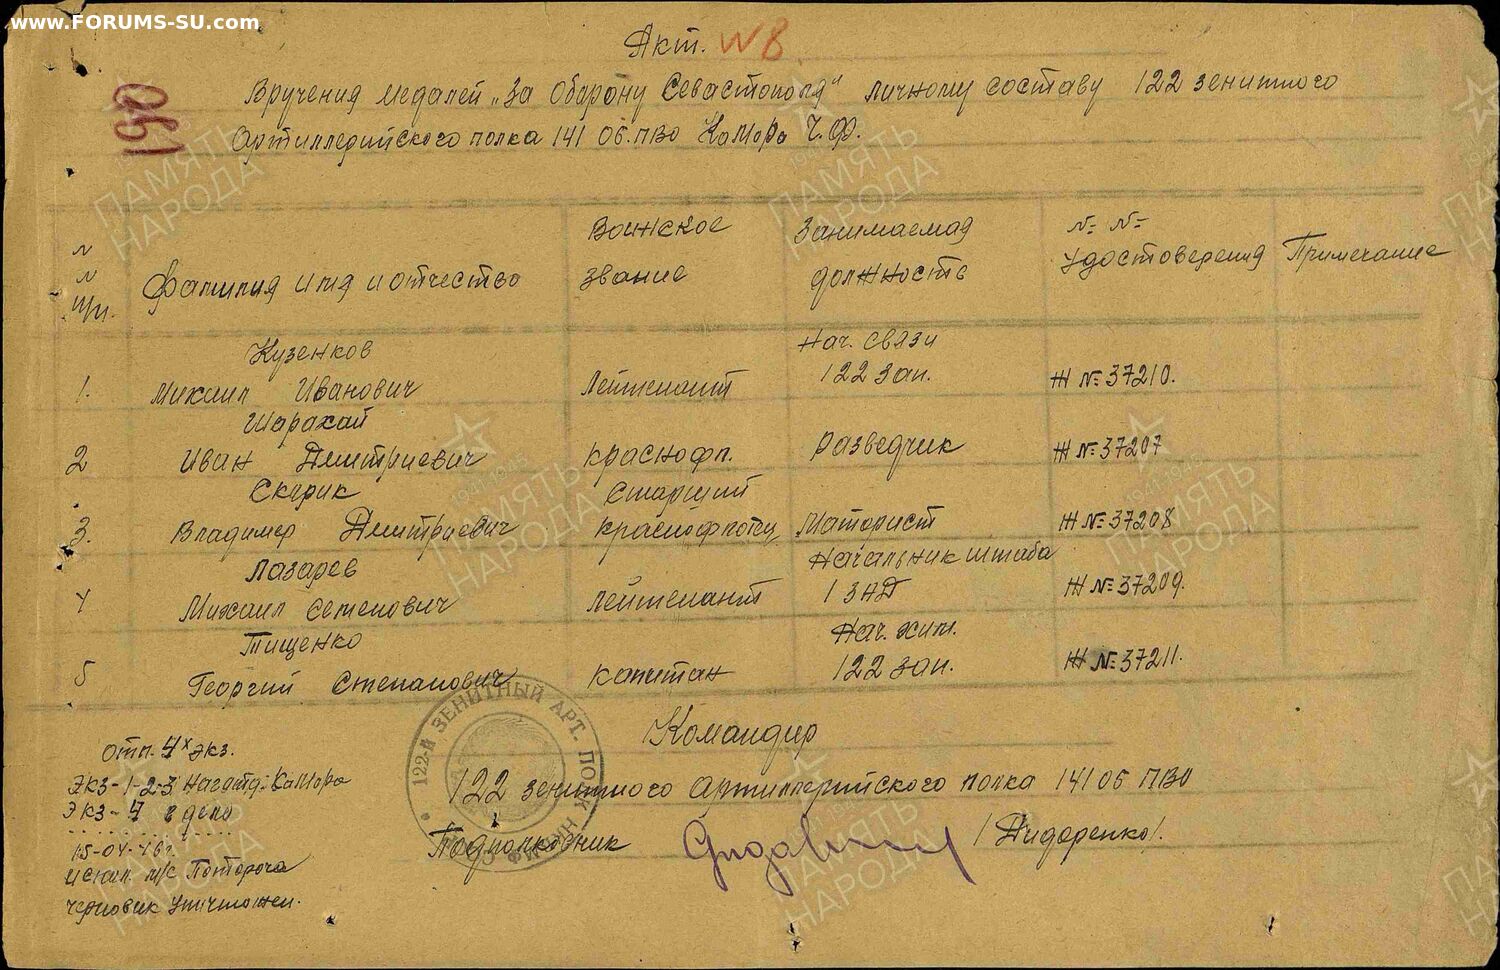 www.FORUMS-SU.com
Акт. N 8
190
Вручения медалей „За Оборону Севастополя" личному составу 122 зенитного
Артиллерийского полка 141 об. ПВО КаМоРа Ч.Ф.
N N п/п.
Фамилия имя и отчество
Воинское звание
Занимаемая должность
№ № Удостоверения
Примечание
1. Кузенков Михаил Иванович Лейтенант Нач. связи 122 зап. Ж № 37210.
2 Шарахай Иван Дмитриевич краснофл. Разведчик Ж № 37207
3. Скирик Владимер Дмитриевич Старший краснофлотец Маторист Ж № 37208
4 Лазарев Михаил Семенович Лейтенант Начальник штаба 1 ЗАД Ж № 37209.
5 Тищенко Георгий Степанович капитан Нач. хим. 122 зап. Ж № 37211.
Командир
122 зенитного Артиллерийского полка 141 об ПВО
Подполковник /Сидоренко/.
122-Й ЗЕНИТНЫЙ АРТ. ПОЛК
Отп. 4х экз.
Экз-1-2-3 КаМоРа
Экз-4 в дело
15-04-46г.
исполн. м/с
черновик уничтожен.
ПАМЯТЬ НАРОДА
ПАМЯТЬ НАРОДА
ПАМЯТЬ НАРОДА
ПАМЯТЬ НАРОДА
ПАМЯТЬ НАРОДА
ПАМЯТЬ НАРОДА